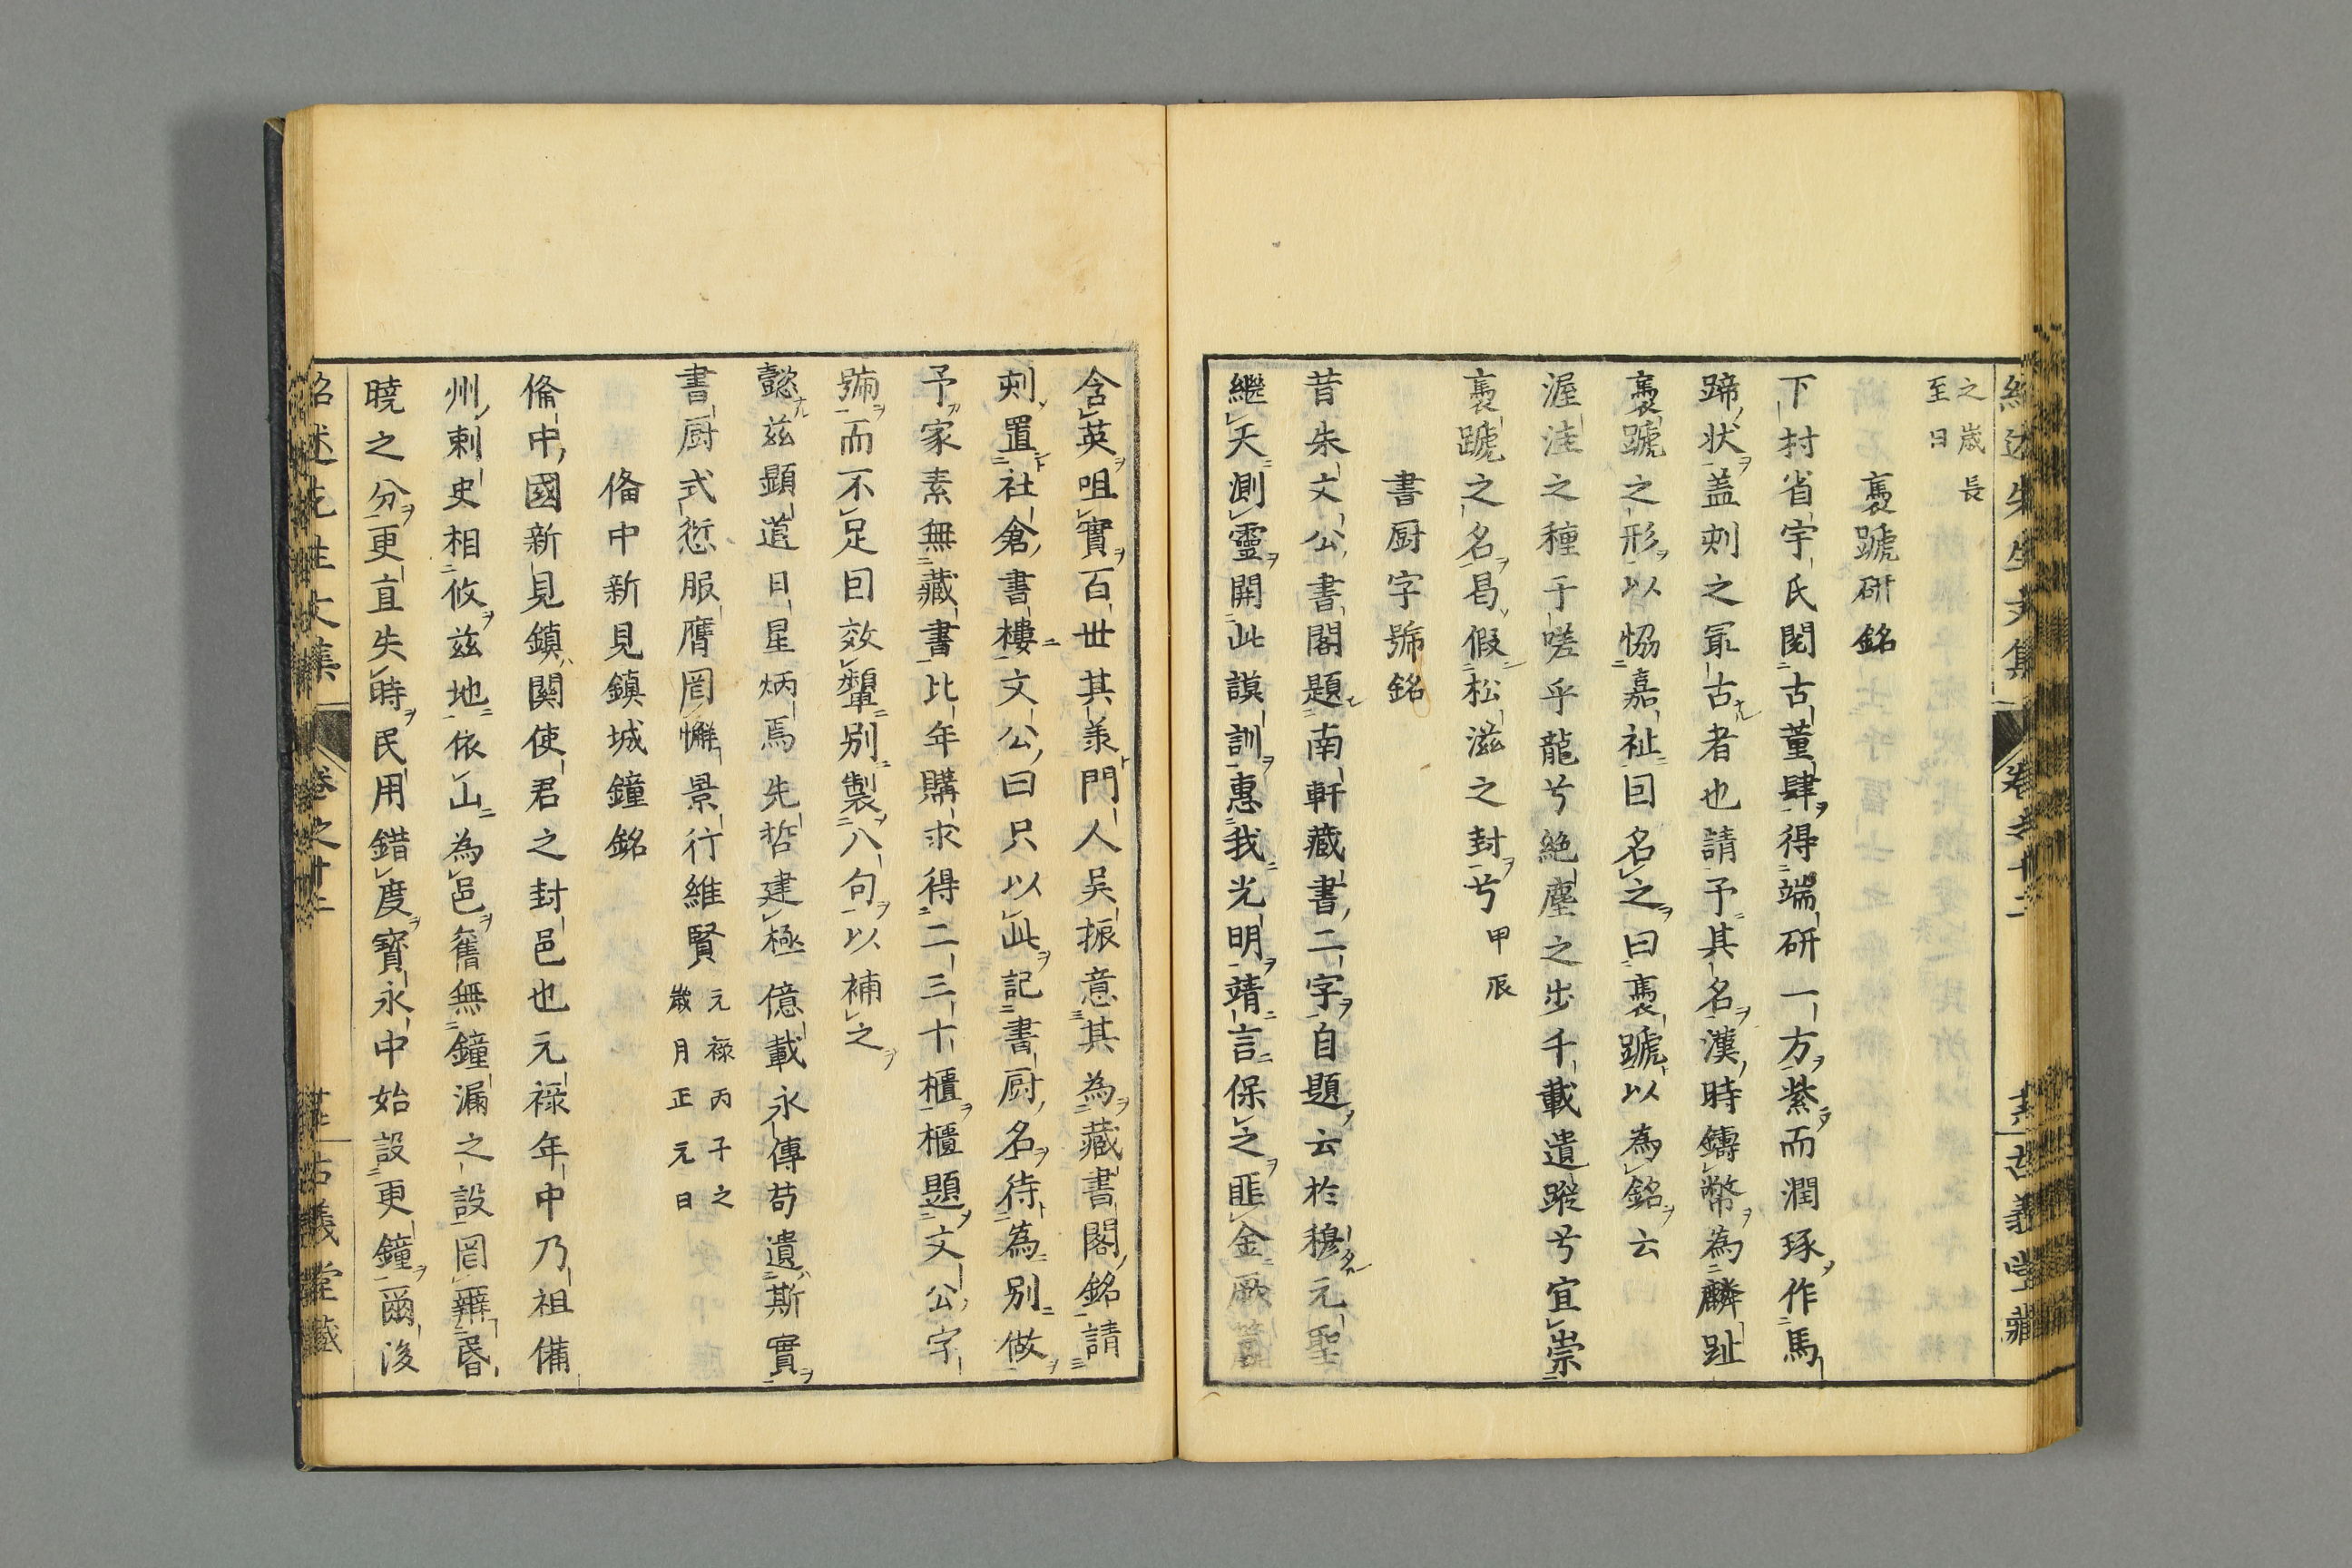 紹述先生文集 卷之十二 古義堂藏
之歲長
至日
褭蹏硏銘
下村省宇氏閱古董肆得端硏一方紫而潤琢作馬
蹄状蓋刻之冣古者也請予其名漢時鑄幣為麟趾
褭蹏之形以恊嘉祉囙名之曰褭蹏以為銘云
渥洼之種于嗟乎龍兮絶塵之步千載遺蹤兮宜崇
褭蹏之名曷假松滋之封兮甲辰
書厨字號銘
昔朱文公書閣題南軒藏書二字自題云於穆元聖
繼天測靈開此謨訓惠我光明靖言保之匪金厥籯
含英咀實百世其承門人吳振意其為藏書閣銘請
刻置社倉書樓文公曰只以此記書厨名待為別做
予家素無藏書比年購求得二三十櫃櫃題文公字
號而不足囙效顰別製八句以補之
懿兹顯道日星炳焉先哲建極億載永傳苟遺斯實
書厨式愆服膺罔懈景行維賢
元禄丙子之
歲月正元日
俻中新見鎮城鐘銘
俻中國新見鎮関使君之封邑也元禄年中乃祖備
州刺史相攸兹地依山為邑舊無鐘漏之設罔辨昏
曉之分更直失時民用錯度寳永中始設更鐘爾後
紹述先生文集 卷之十二 古義堂藏